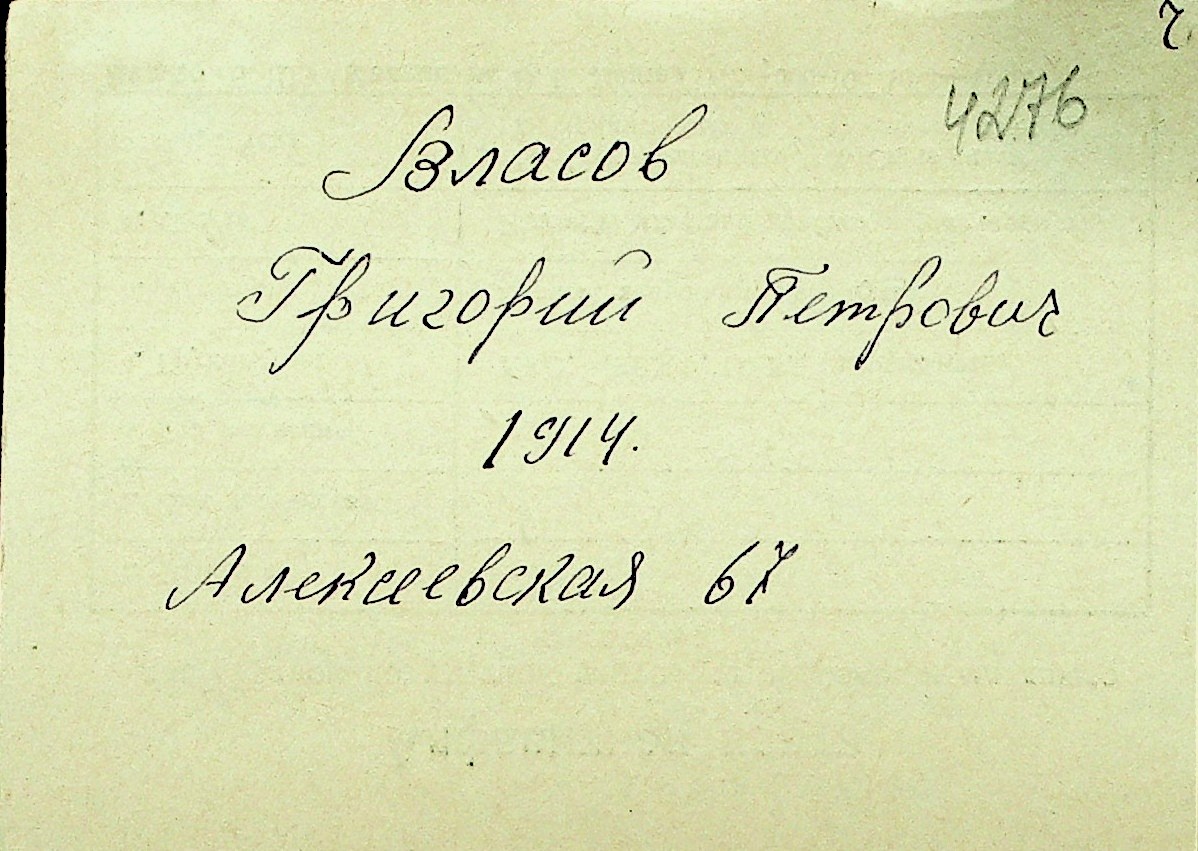 4276
Власов
Григорий Петрович
1914.
Алексеевская 67